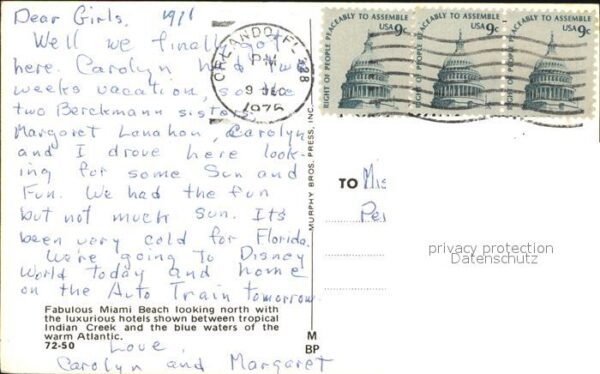 Dear Girls,
Well we finally got
here. Carolyn had two
weeks vacation, so the
two Berckmann sisters,
Margaret Lanahan, Carolyn
and I drove here look-
ing for some Sun and
Fun. We had the fun
but not much Sun. Its
been very cold for Florida.
We're going to Disney
World today and home
on the Auto Train tomorrow.
Love,
Carolyn and Margaret
Fabulous Miami Beach looking north with
the luxurious hotels shown between tropical
Indian Creek and the blue waters of the
warm Atlantic.
72-50
ORLANDO, FL 328
PM
9 DEC
1975
RIGHT OF PEOPLE PEACEABLY TO ASSEMBLE
USA 9c
RIGHT OF PEOPLE PEACEABLY TO ASSEMBLE
USA 9c
RIGHT OF PEOPLE PEACEABLY TO ASSEMBLE
USA 9c
MURPHY BROS. PRESS, INC.
M
BP
TO Mis
Pe
privacy protection
Datenschutz